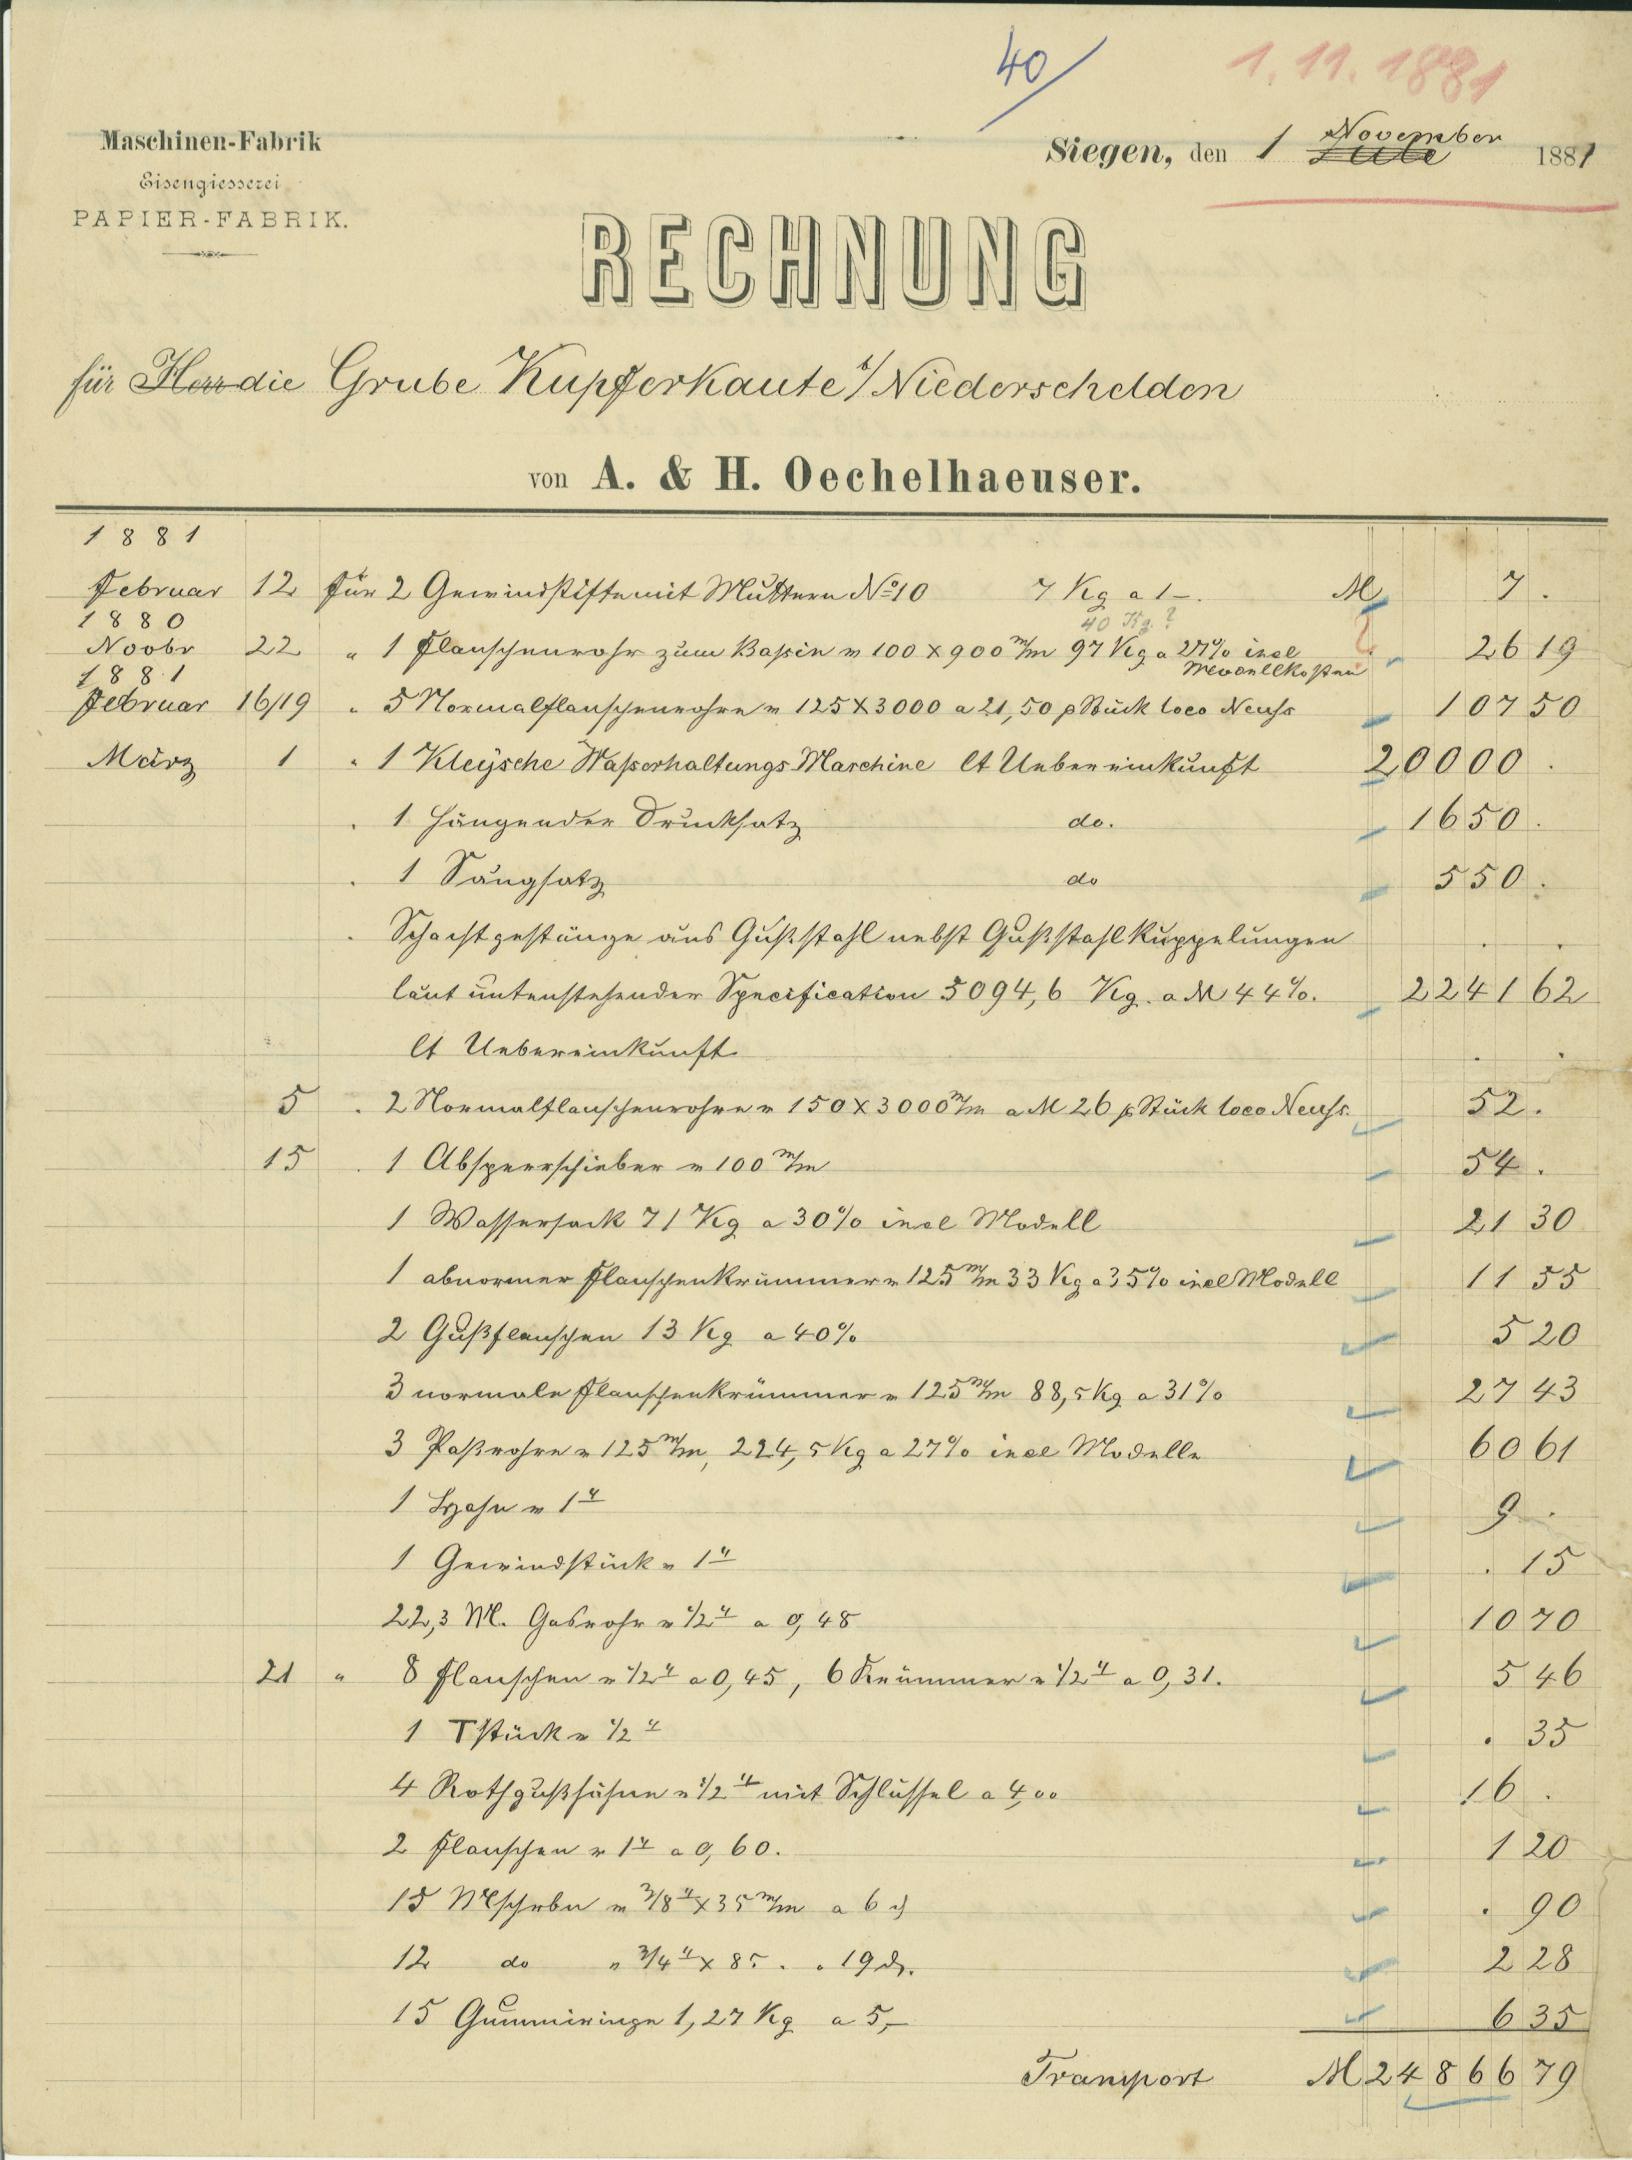 40/
1.11.1881
Maschinen-Fabrik
Eisengiesserei
PAPIER-FABRIK.
Siegen, den 1 November 1881
RECHNUNG
für Herr die Grube Kupferkaute b/Niederschelden
von A. & H. Oechelhaeuser.
1881
Februar 12 Für 2 Gewindstifte mit Muttern No 10 7 Kg a 1–. M 7 .
1880
40 Kg ?
Novbr 22 " 1 Flanschenrohr zum Bassin v 100 x 900 m/m 97 Kg a 27% incl Modellkosten 26 19
1881
Februar 16/19 " 5 Normalflanschenrohre v 125 x 3000 a 21,50 p Stück loco Neuss 107 50
März 1 " 1 Kley'sche Wasserhaltungs Maschine lt Uebereinkunft 20000 .
" 1 hängender Drucksatz do. 1650 .
" 1 Saugsatz do 550 .
" Schachtgestänge aus Gußstahl nebst Gußstahlkuppelungen . .
laut untenstehender Specification 5094,6 Kg. a M 44%. 2241 62
lt Uebereinkunft . .
5 " 2 Normalflanschenrohre v 150 x 3000 m/m a M 26 p Stück loco Neuss. 52 .
15 " 1 Absperrschieber v 100 m/m 54 .
1 Wassersack 71 Kg a 30% incl Modell 21 30
1 abnormer Flanschenkrümmer v 125 m/m 33 Kg a 35% incl Modell 11 55
2 Gußflanschen 13 Kg a 40% 5 20
3 normale Flanschenkrümmer v 125 m/m 88,5 Kg a 31% 27 43
3 Paßrohre v 125 m/m, 224,5 Kg a 27% incl Modelle 60 61
1 Hahn v 1" 9 .
1 Gewindstück v 1" . 15
22,3 M. Gasrohr v 1/2" a 0,48 10 70
21 " 8 Flanschen v 1/2" a 0,45, 6 Krümmer v 1/2" a 0,31. 5 46
1 T Stück v 1/2" . 35
4 Rothgußhähne v 1/2" mit Schlüssel a 4,00 16 .
2 Flanschen v 1" a 0,60. 1 20
15 Mschrbn v 3/8" x 35 m/m a 6 ₰ . 90
12 do " 3/4" x 85 " " 19 ₰. 2 28
15 Gummiringe 1,27 Kg a 5,– 6 35
Transport M 24866 79